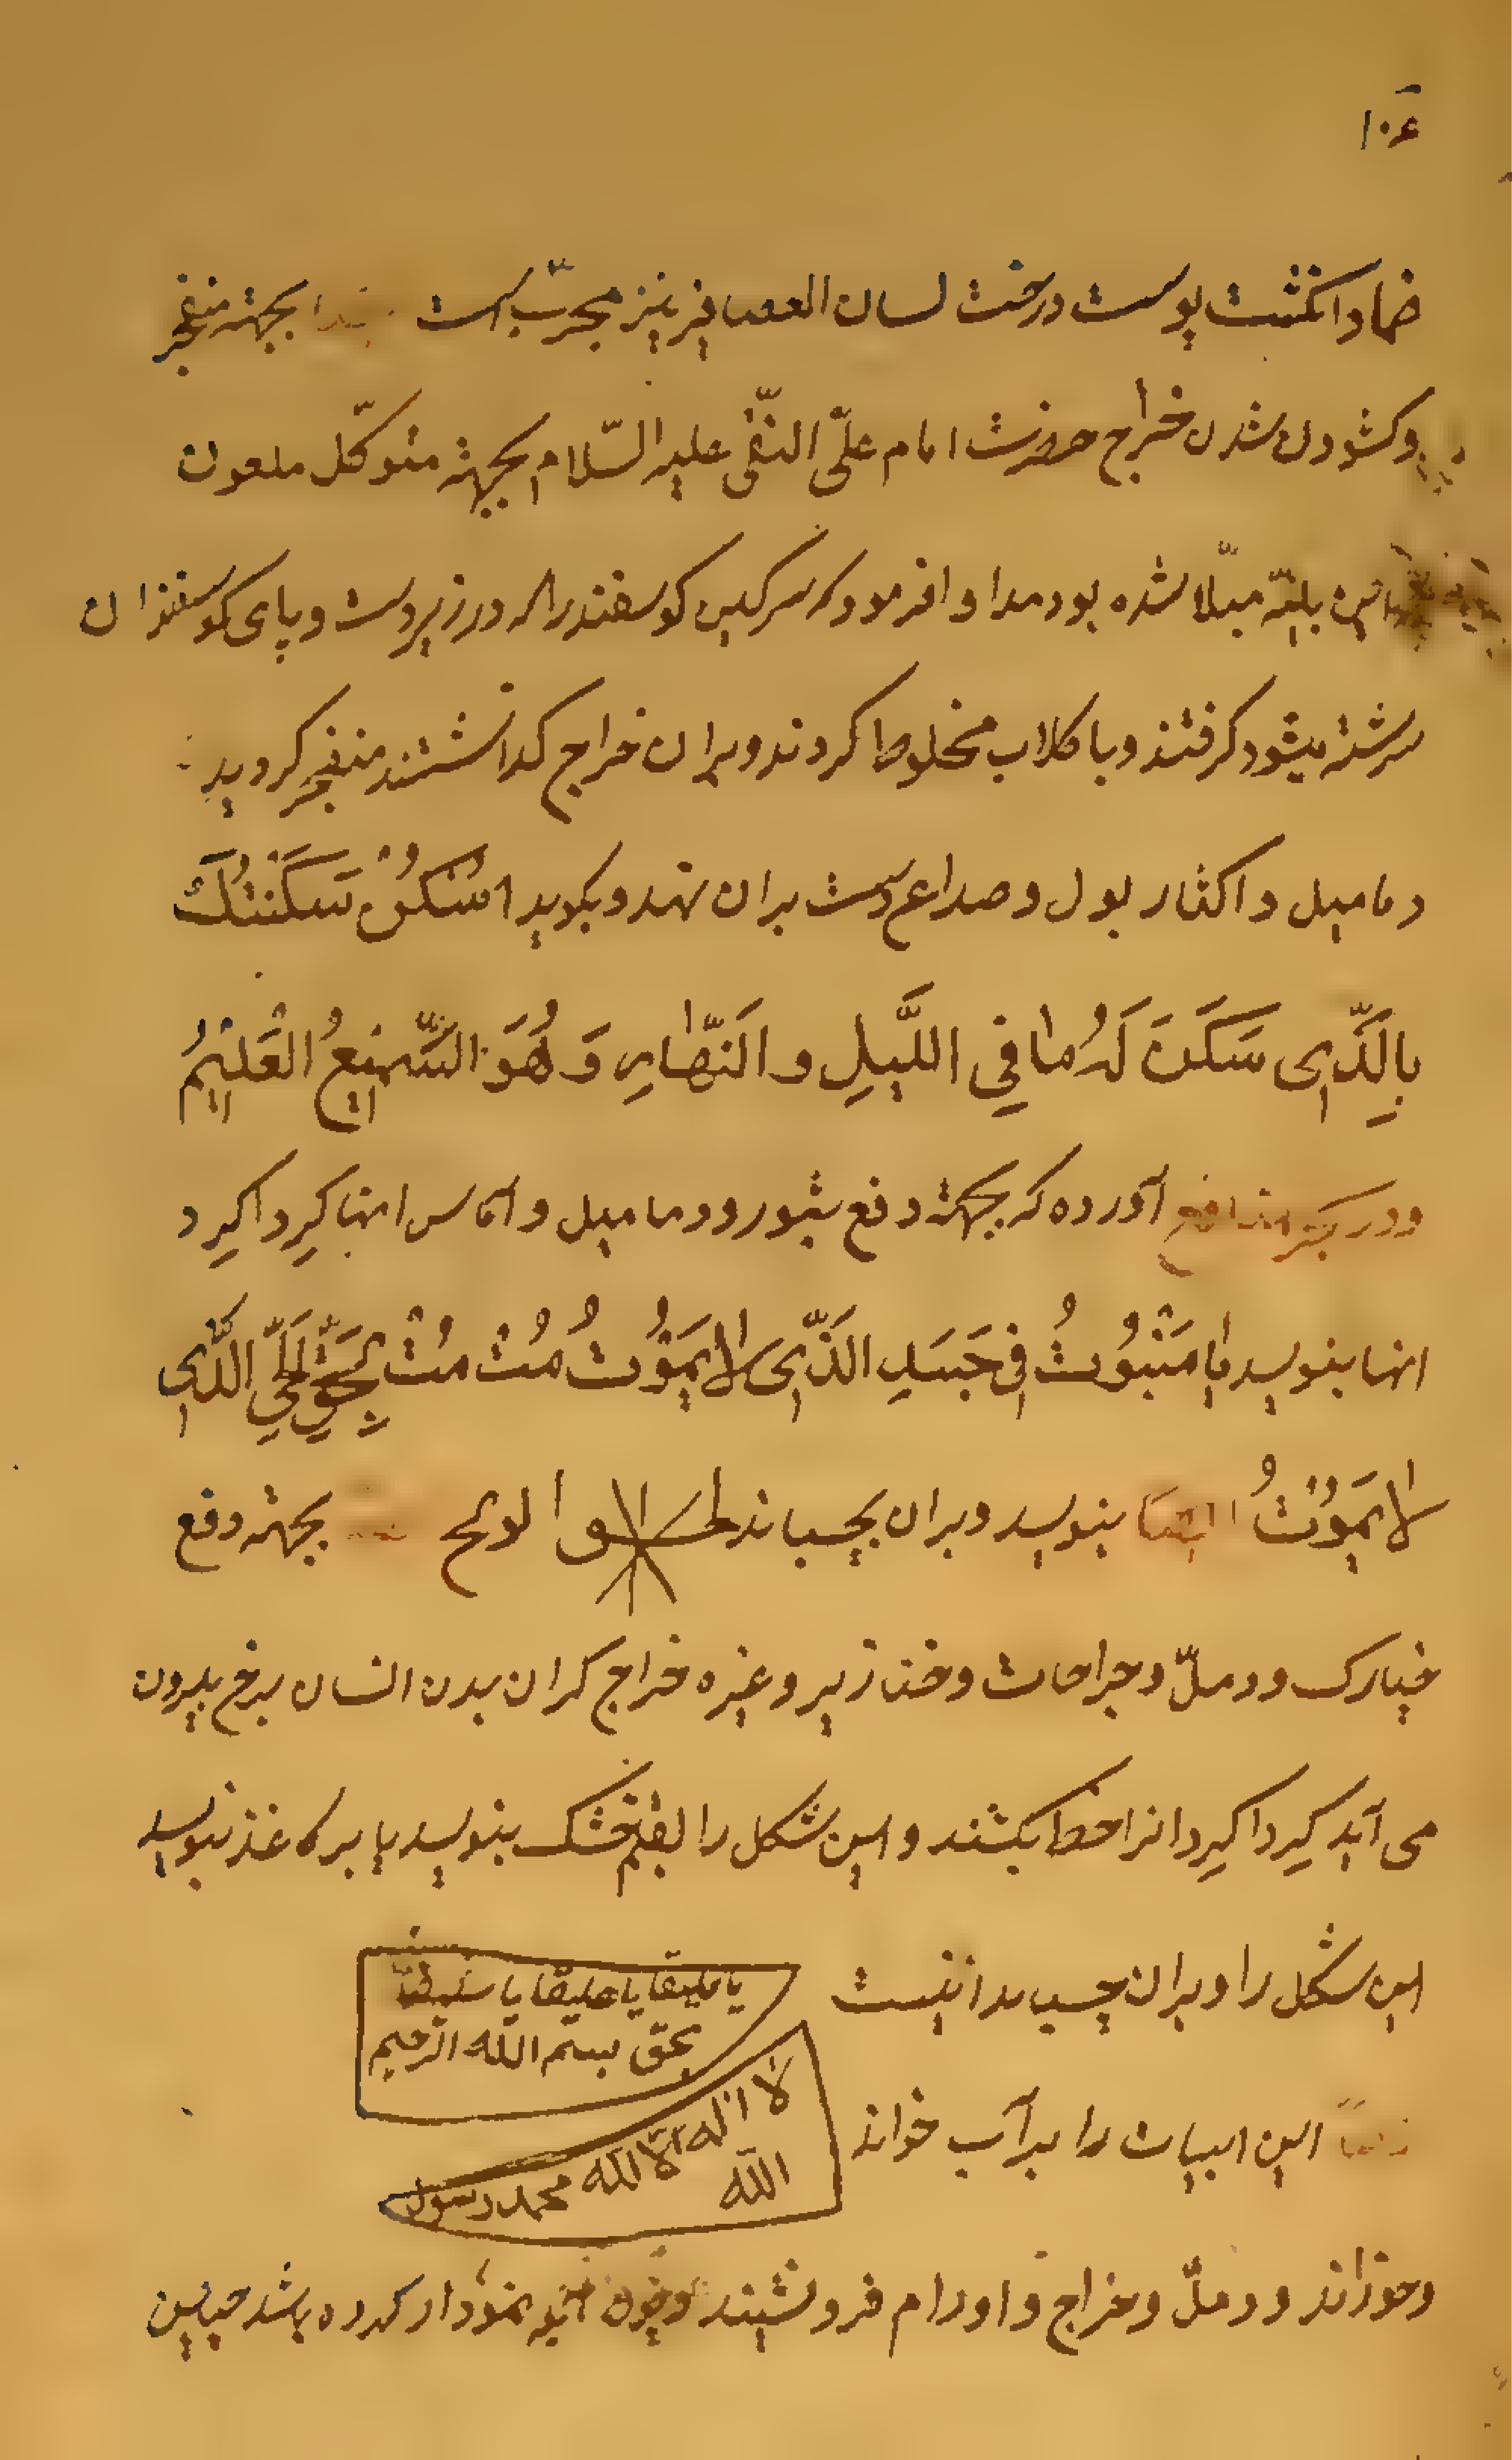 ۱۰۶
ضماد انکشت پوست درخت لسان العصافیر نیز مجرّب است بجهته منفجر
و کشودن شدن خراج حضرت امام علیّ النّقی علیه السّلام بجهته متوکّل ملعون
باین بلیّه مبتلا شده بود مداوا فرمود که سرکین کوسفند را که در زیر دست و پای کوسفندان
سرشته میشود کرفتند و با کلاب مخلوط کردند و بران خراج کذاشتند منفجر کردید
دمامیل و اکثار بول و صداع دست بران نهد و بکوید اُسْکُنْ سَکَّنْتُكَ
بِالَّذِی سَکَنَ لَهُ مٰا فِی اللَّیلِ وَالنَّهٰارِ وَ هُوَ السَّمِیعُ الْعَلِیمُ
و در کتب منافع آورده که بجهته دفع بثور و دمامیل و آماس انها کِرداکِرد
انها بنویسد یا مَثْبُوتُ فِی جَسَدِ الَّذِی لا یَمُوتُ مُتْ مُتْ بِحَقِّ الْحَیِّ الَّذِی
لا یَمُوْتُ ایضا بنویسد و بران بچسباند الواح بجهته دفع
خیارک و دملّ و جراحات و خنازیر و غیره خراج کران بدن انسان برخ بیرون
می آید کِرداکِرد انرا خط بکشند و این شکل را بقلم خشک بنویسد یا بر کاغذ بنویسد
این شکل را و بران چسباند اینست
یا ملیقا یا حلیقا یا سلیقا
بحق بسم الله الرحیم
لا اله الا الله محمد رسول
الله
ایضاً این ابیات را بر آب خواند
و خوراند و دملّ و خراج و اورام فرونشیند و چون نمودار کرده باشد جنین